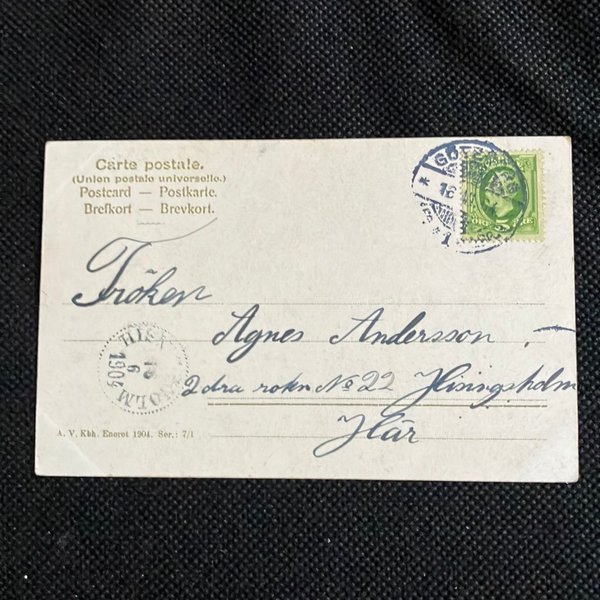 Carte postale.
(Union postale universelle.)
Postcard — Postkarte.
Brefkort — Brevkort.
Fröken
Agnes Andersson.
2dra roten No 22 Hisingsholm
Här
12
6
1904
A. V. Kbh. Eneret 1904. Ser.: 7/1